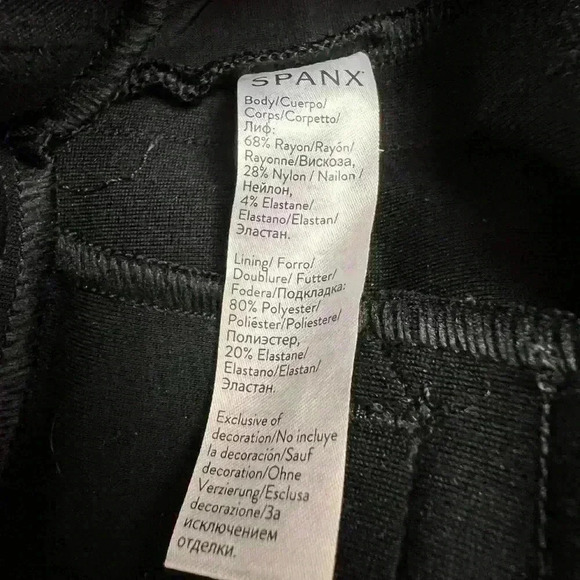 SPANX
Body/Cuerpo/
Corps/Corpetto/
Лиф:
68% Rayon/Rayón/
Rayonne/Вискоза,
28% Nylon / Nailon /
Нейлон,
4% Elastane/
Elastano/Elastan/
Эластан.
Lining/ Forro/
Doublure/ Futter/
Fodera/Подкладка:
80% Polyester/
Poliéster/Poliestere/
Полиэстер,
20% Elastane/
Elastano/Elastan/
Эластан.
Exclusive of
decoration/No incluye
la decoración/Sauf
decoration/Ohne
Verzierung/Esclusa
decorazione/За
исключением
отделки.